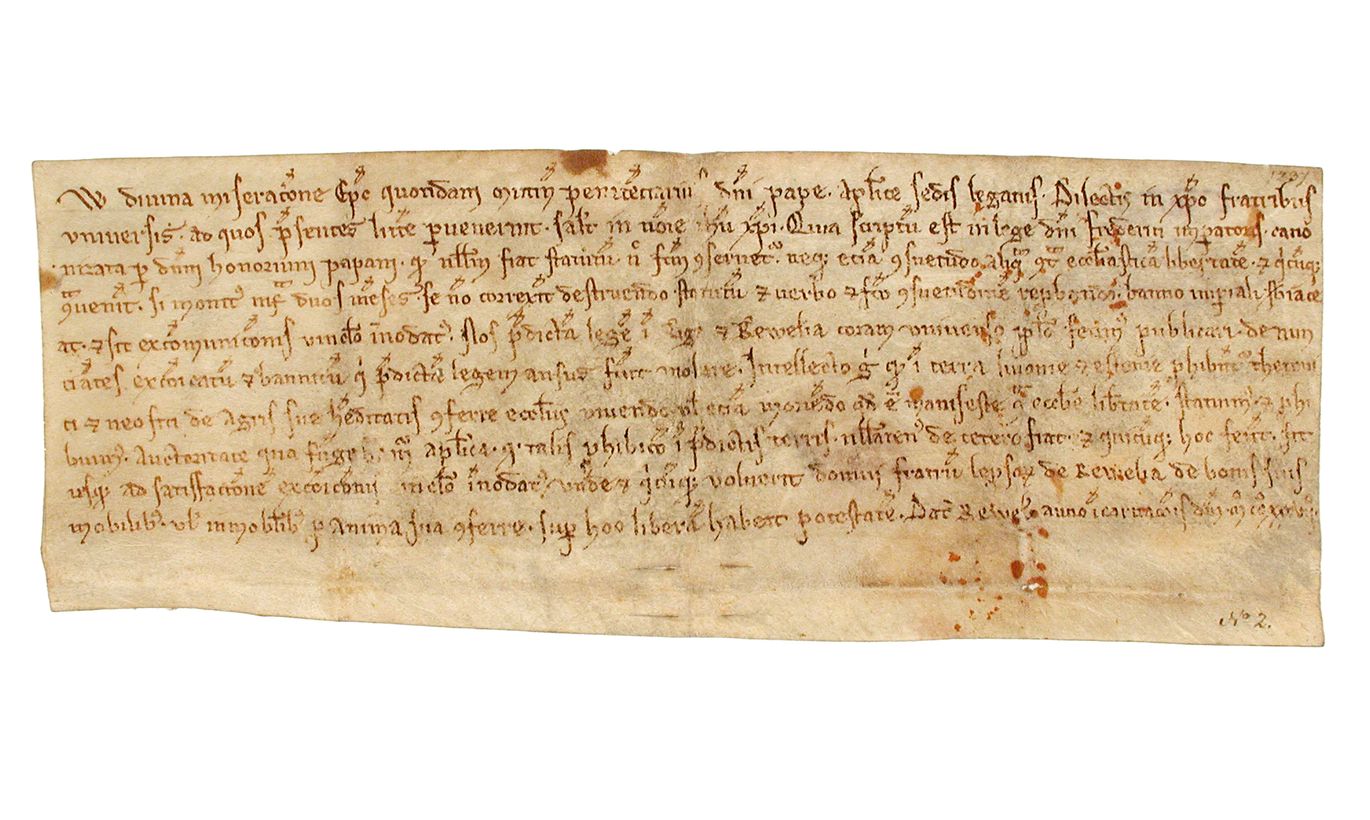 1237
W divina miserat̄one Ep̄c quondam Mutin̄ penitentiarius dn̄i pape. Apl̄ice sedis legatus. Dilectis in xp̄o fratribus
universis. ad quos p̄sentes litt̄e p̄venerint. salt̄ in nōie ih̄u xp̄i. Quia scriptū est in lege dn̄i frederici imp̄atoris. cano
nizata p̄ dn̄m honorium papam. qđ null̄m fiat statutū. ut fc̄m ꝯservet᷑. neq; etiā ꝯsuetudo aliqᵃ ꝯtᵃ eccl̄iasticā libertatē. ⁊ qͥcūq;
ꝯᵗvenit. si monitꝰ infᵃ duos mēses se nō correxit destruendo statutū ⁊ verbo ⁊ fc̄o ꝯsuetudinē rep̄bando. banno imp̄iali sbiace
at. ⁊ sit excōmunicat̄onis vincl̄o īnodatꝰ. Nos p̄dictā legē ī Riga ⁊ Rewelia coram universo ppl̄o fecimꝰ publicari. denun
ciātes excōicatū ⁊ bannitū qͥ p̄dictā legem ausus fuit violare. Intellecto gͦ qđ ī terra livonie ⁊ estonie ꝓhibent᷑ theotoni
ci ⁊ neofiti de agris sue h̄editatis ꝯferre eccl̄iis vivendo vl̄ etiā moriēdo qđ ē manifeste ꝯtᵃ eccl̄ie lib̄tatē. statuimꝰ ⁊ ꝓhi
bemꝰ. Auctoritate qua fūgim̄ apl̄ica. qđ talis ꝓhibic̄o ī p̄dictis terris. nullatenꝰ de cetero fiat. ⁊ quicūq; hoc fec̄it. sit
usq; ad satisfactionē excōiconis vincl̄o īnodatꝰ. Unde ⁊ qͥcūq; voluerit domui fratrū lep̄sor̄ de Rewelia de bonis suis
mobilibꝰ. vl̄ inmobl̄ibꝰ p̄ anima sua ꝯferre. sup̄ hoc liberā habeat potestatē. Dat̄ Rewel̄ anno īcarnac̄ois dn̄i
No 2.